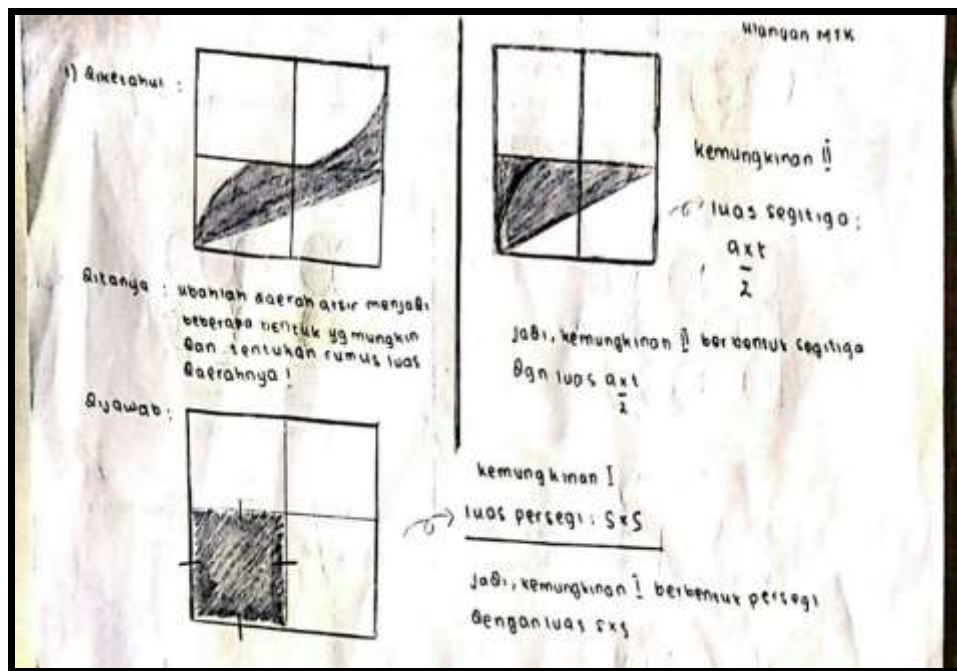 Ulangan MTK
1) Diketahui :
Ditanya : ubahlah daerah arsir menjadi
beberapa bentuk yg mungkin
dan tentukan rumus luas
daerahnya !
Dijawab :
kemungkinan I
luas persegi : S x S
jadi, kemungkinan I berbentuk persegi
dengan luas sxs
kemungkinan II
luas segitiga :
a x t
2
jadi, kemungkinan II berbentuk segitiga
dgn luas a x t
2